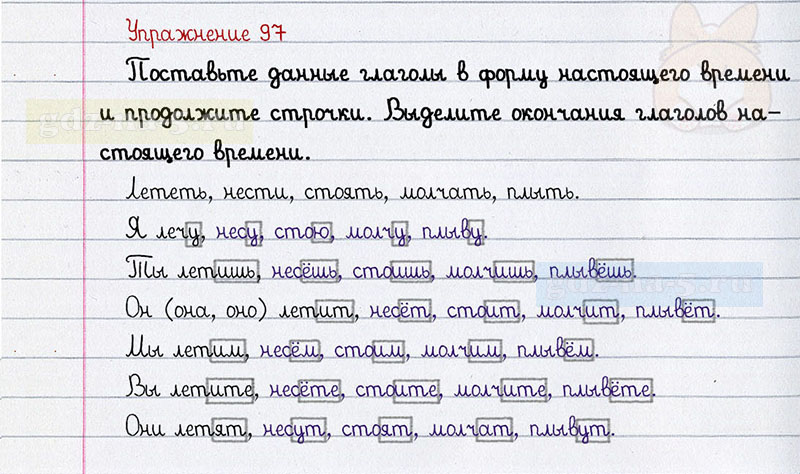 Упражнение 97
Поставьте данные глаголы в форму настоящего времени
и продолжите строчки. Выделите окончания глаголов на-
стоящего времени.
Лететь, нести, стоять, молчать, плыть.
Я лечу, несу, стою, молчу, плыву.
Ты летишь, несёшь, стоишь, молчишь, плывёшь.
Он (она, оно) летит, несёт, стоит, молчит, плывёт.
Мы летим, несём, стоим, молчим, плывём.
Вы летите, несёте, стоите, молчите, плывёте.
Они летят, несут, стоят, молчат, плывут.